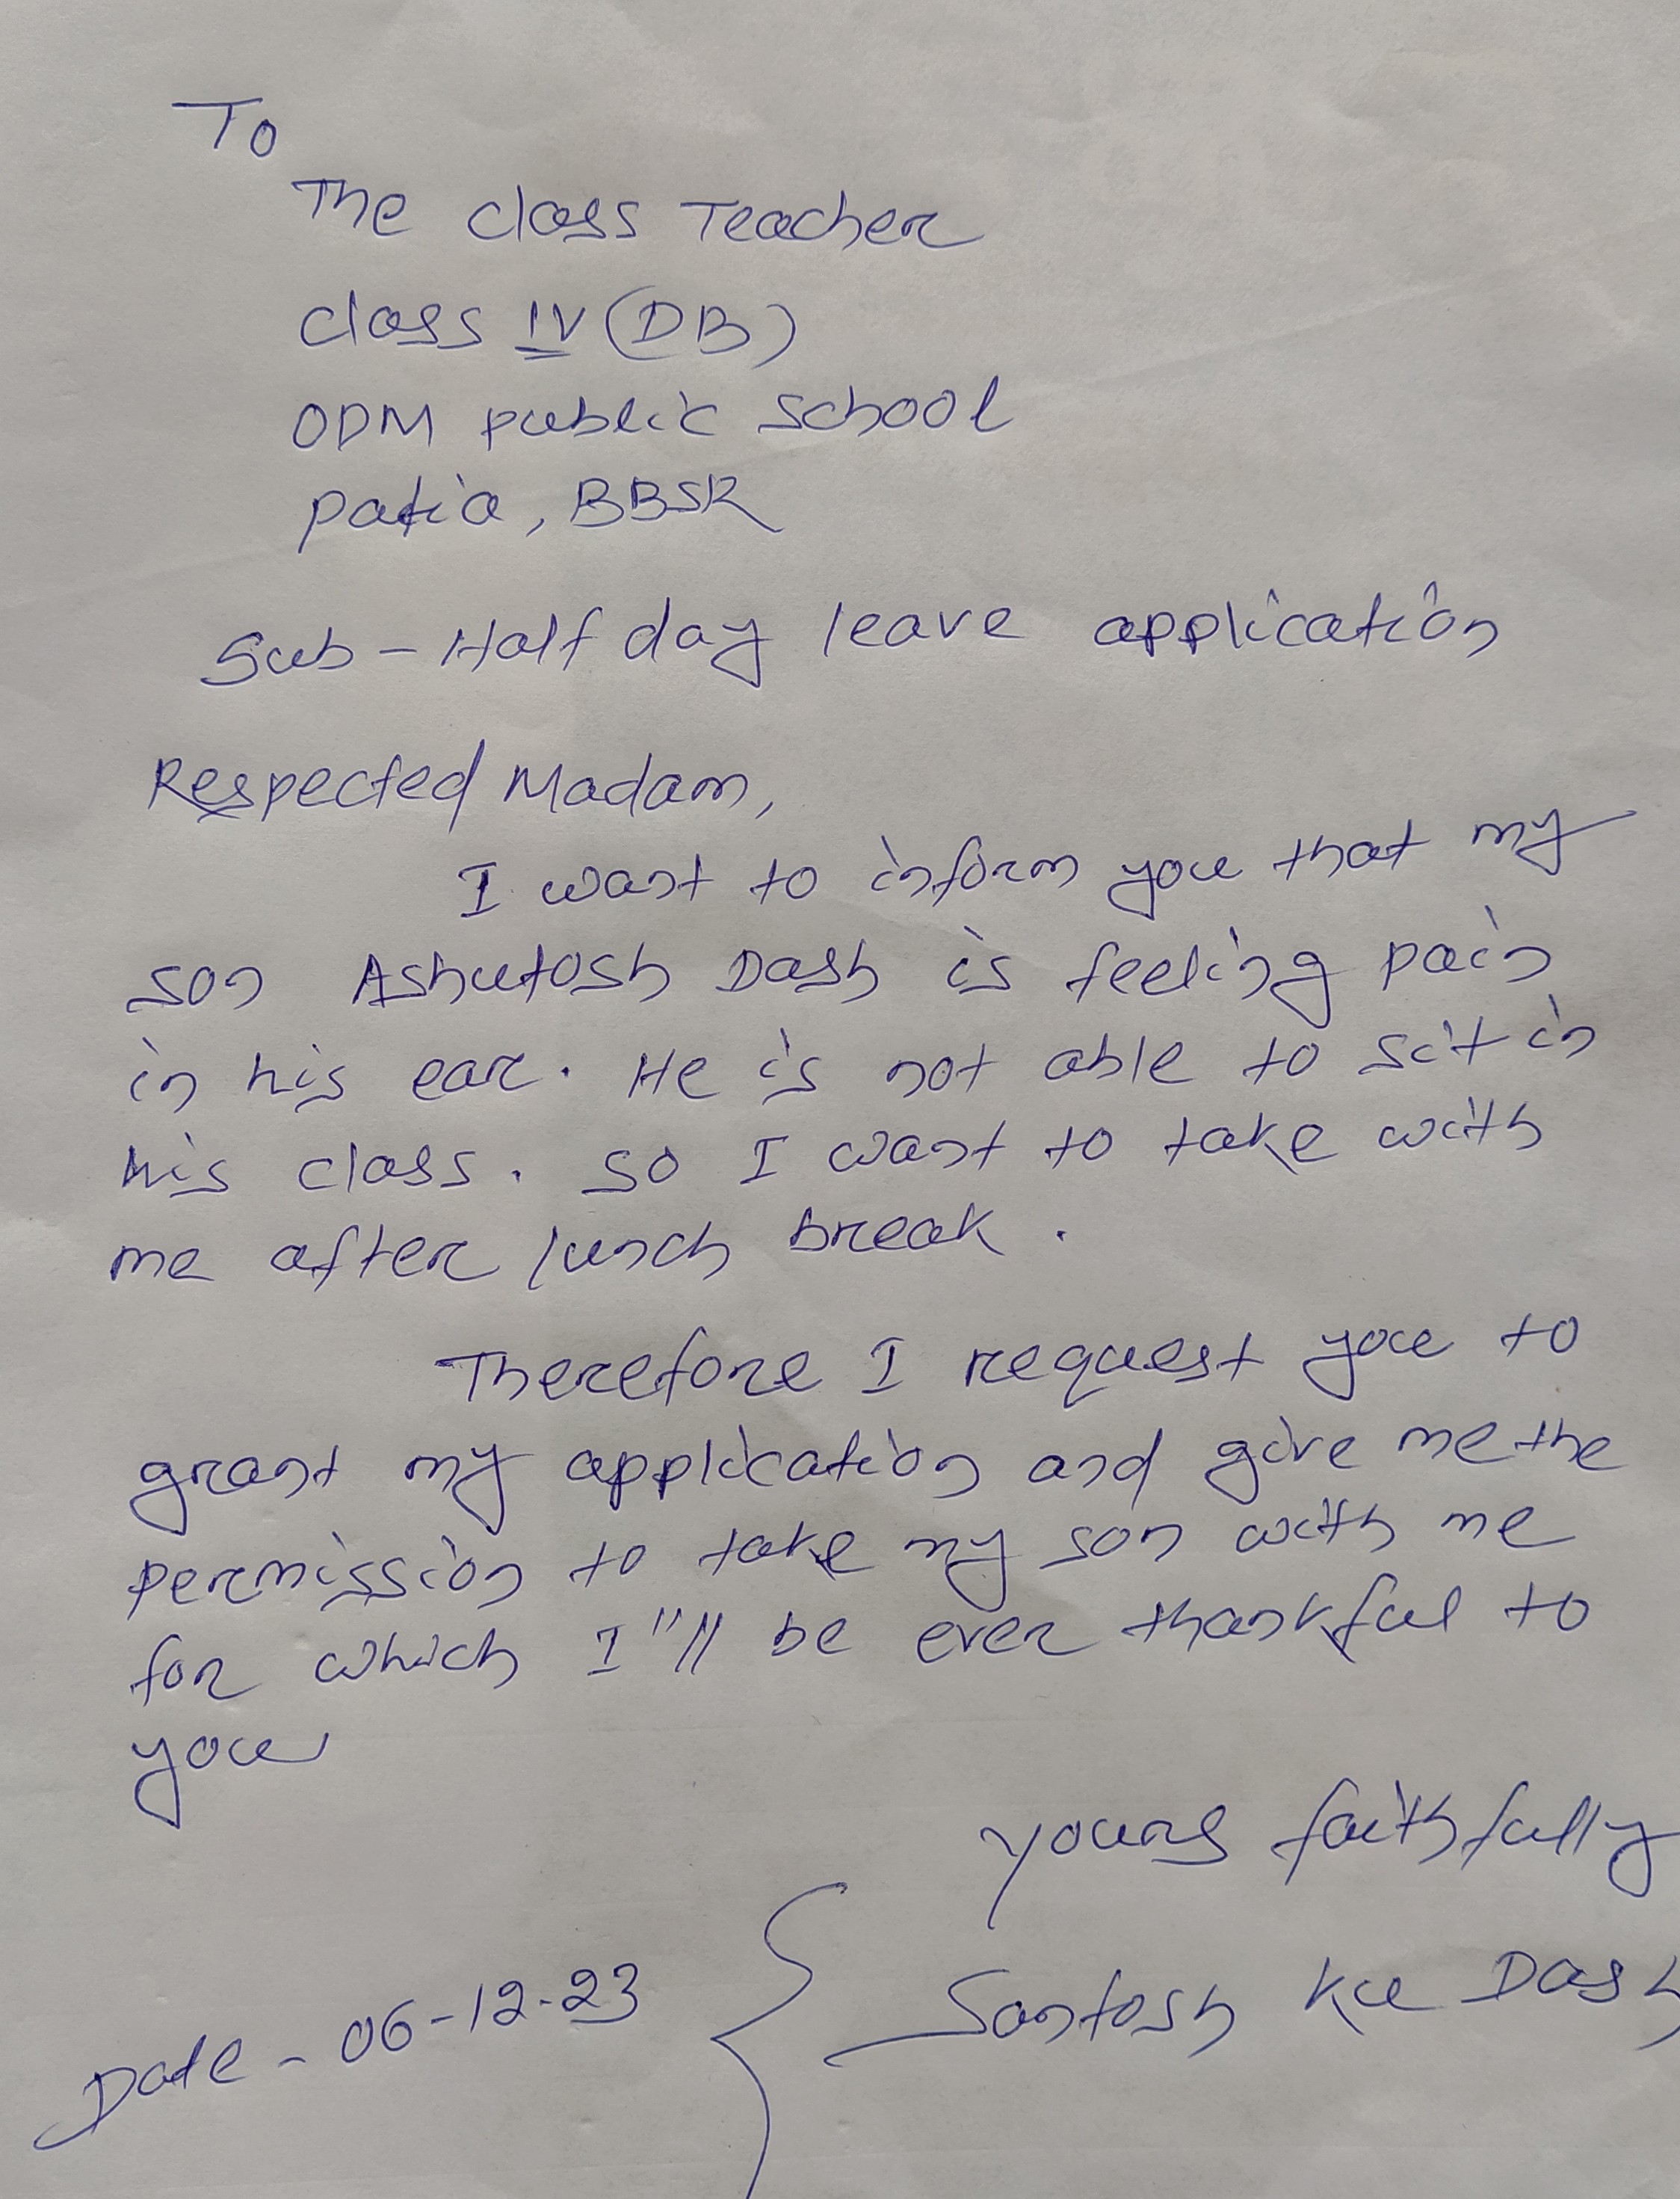 To
The class Teacher
class IV (DB)
ODM public school
patia, BBSR
Sub - Half day leave application
Respected Madam,
I want to inform you that my
son Ashutosh Dash is feeling pain
in his ear. He is not able to sit in
his class. so I want to take with
me after lunch break.
Therefore I request you to
grant my application and give me the
permission to take my son with me
for which I"ll be ever thankful to
you
yours faithfully
Santosh Ku Dash
Date - 06-12-23